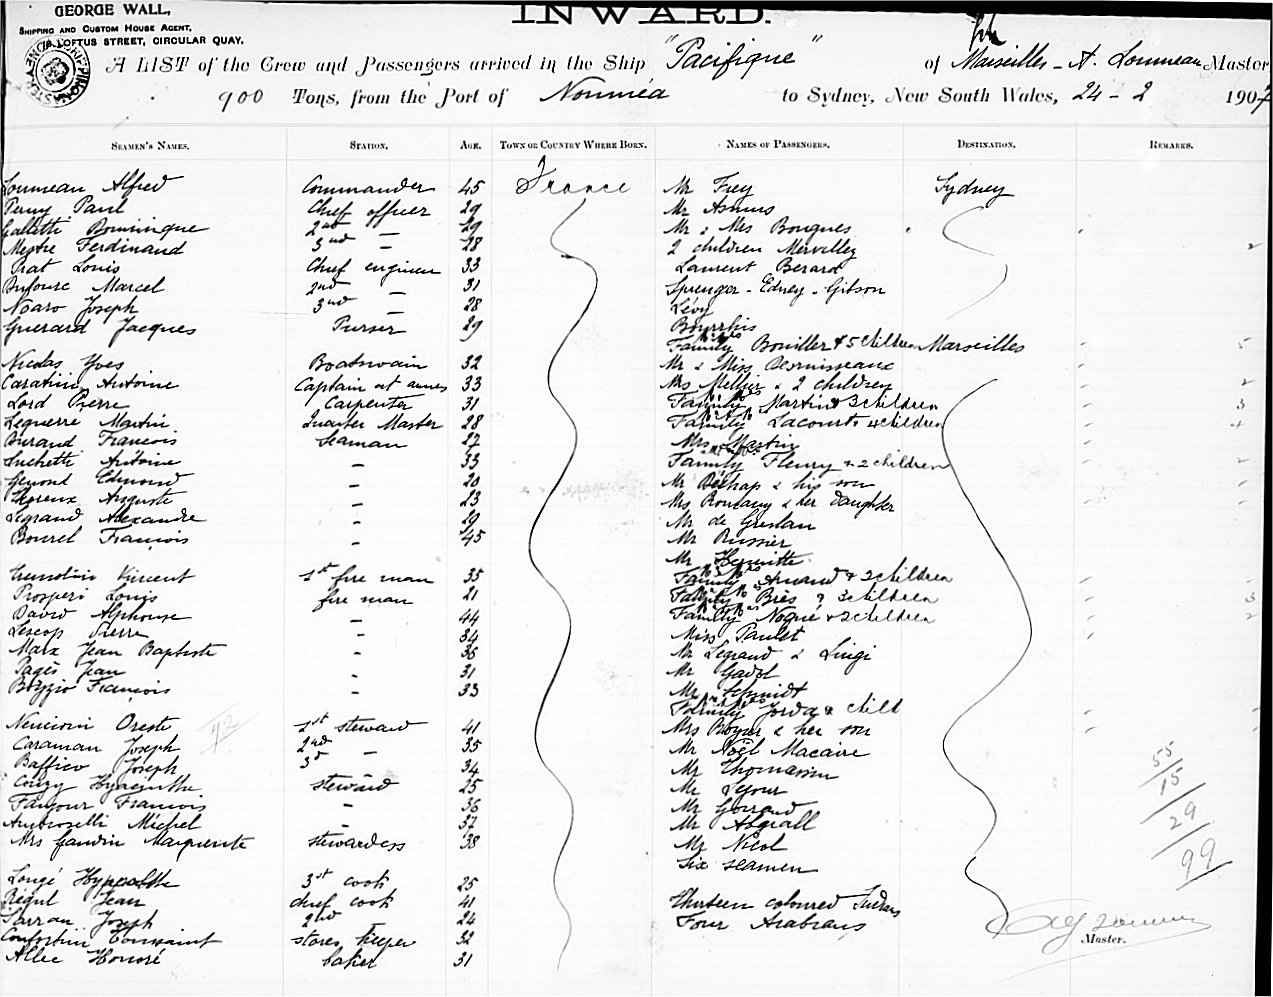 GEORGE WALL,
SHIPPING AND CUSTOM HOUSE AGENT,
LOFTUS STREET, CIRCULAR QUAY.
INWARD.
A LIST of the Crew and Passengers arrived in the Ship "Pacifique" of Marseilles - A. Loumeau Master
900 Tons, from the Port of Nouméa to Sydney, New South Wales, 24 - 2 1907
SEAMEN'S NAMES. STATION. AGE. TOWN OR COUNTRY WHERE BORN. NAMES OF PASSENGERS. DESTINATION. REMARKS.
Loumeau Alfred Commander 45 France Mr Frey Sydney
Perny Paul Chief officer 29 Mr Asmus
Galletti Dominique 2nd — 29 Mr & Mrs Bougues
Mestre Ferdinand 3rd — 28 2 children Mervilley 2
Prat Louis Chief engineer 33 Laurent Berard
Dufourc Marcel 2nd — 31 Sprenger - Edney - Gibson
Noaro Joseph 3rd — 28 Lévy
Guerard Jacques Purser 29
Family Bouiller & 5 children Marseilles 5
Nicolas Yves Boatswain 32 Mr & Miss
Antoine Captain at arms 33 Mrs Mellier & 2 children 2
Lord Pierre Carpenter 31 Family Martin & 3 children 3
Leguerre Martin Quarter Master 28 Family Lacourt & 4 children 4
Durand Francois Seaman 27 Mrs Martin
Luchetti Antoine — 33 Family Fleury & 2 children 2
Edmond — 20 Mr & his son
Auguste — 23 Mrs & her daughter
Legrand Alexandre — 29 Mr de Greslan
Bourel François — 45 Mr Russier
Mr
Vincent 1st fire man 35 Family Arnaud & 2 children
Prosperi Louis fire man 21 Family Briès & 3 children 3
David Alphonse — 44 Family Nogué & 2 children 2
Lescop Pierre — 34 Miss Paulet
Marx Jean Baptiste — 36 Mr Legrand & Luigi
Pagès Jean — 31 Mr Gadol
François — 33 Mr Schmidt
Family Jorda & child
Nencioni Oreste 1st steward 41 Mrs Royer & her son
42
Caraman Joseph 2nd — 35 Mr Noël Macaire
Baffico Joseph 3d 34 Mr Thomassin 55
Hyacinthe steward 25 Mr Sejour 15
François — 36 Mr
Ambroselli Michel — 37 Mr Abgrall 29
Mrs Gaudin Marguerite stewardess 38 Mr Nicol 99
Six seamen
Longé Hyppolite 3st cook 25
Régul Jean chief cook 41 Thirteen coloured
Sarran Joseph 2nd — 24 Four Arabians
Confortini Toussaint stores keeper 32
Master.
Allec Honoré baker 31